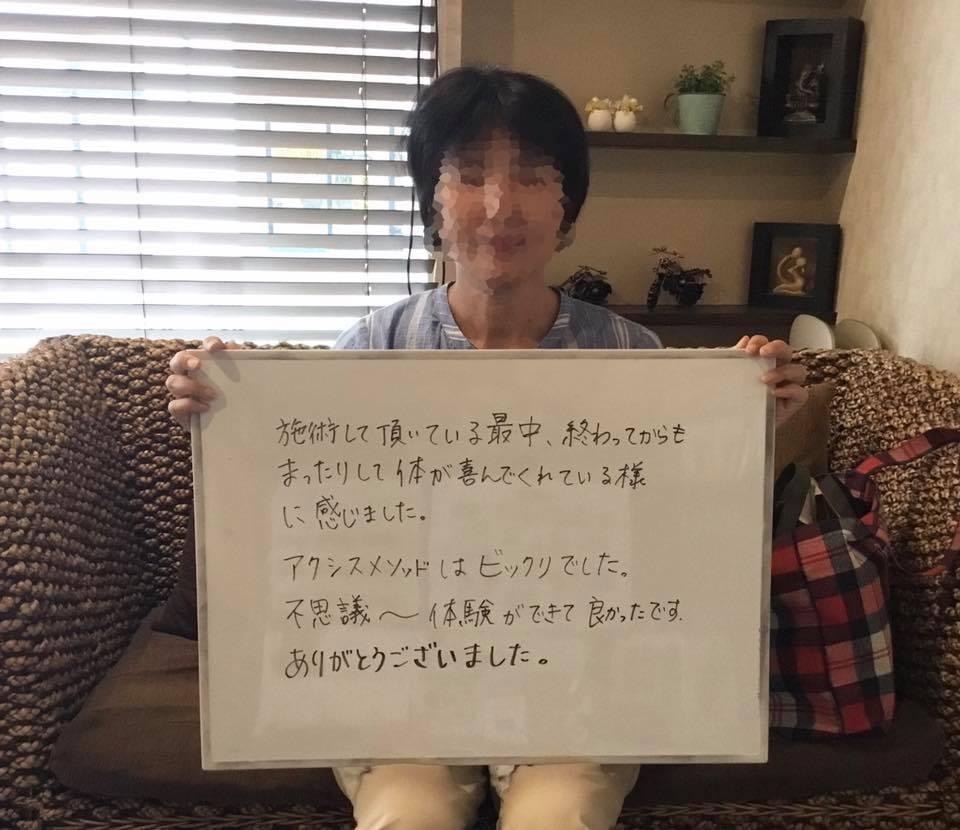 施術して頂いている最中、終わってからも
まったりして体が喜んでくれている様
に感じました。
アクシスメソッドはビックリでした。
不思議〜体験ができて良かったです.
ありがとうございました。